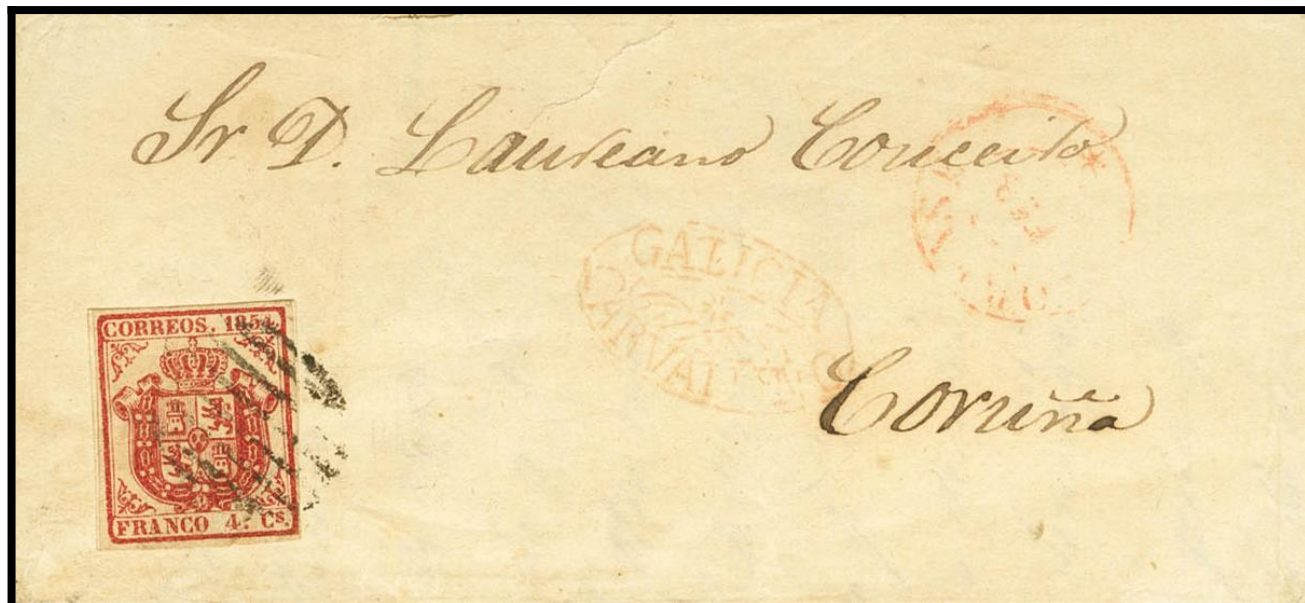 Sr D. Laureano Couceiro
GALICIA
CARVALLO
Coruña
CORREOS. 1854.
FRANCO 4. Cs.